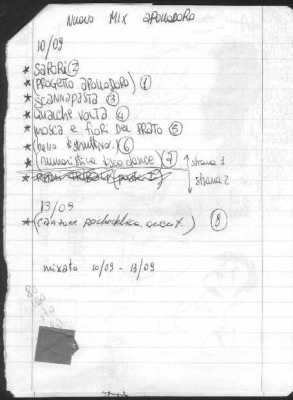 NUOVO MIX APOLLODORO
10/09
★ SAPORI ②
★ (PROGETTO APOLLODORO) ①
★ SCANNAPASTA ③
★ QUALCHE VOLTA ④
★ MOSCA E FIORI DEL PRATO ⑤
★ ⑥
★ (numeristica dance) ⑦ strana 1
★ strana 2
13/09
★ (canzone psichedelica ) ⑧
mixato 10/09 - 13/09